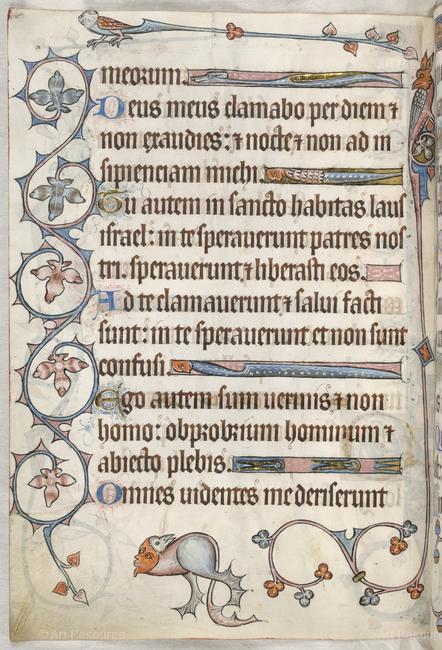 meorum.
Deus meus clamabo per diem ⁊
non exaudies: ⁊ nocte ⁊ non ad in
sipienciam michi.
Tu autem in sancto habitas laus
israel: in te sperauerunt patres nos
tri. sperauerunt ⁊ liberasti eos.
Ad te clamauerunt ⁊ salui facti
sunt: in te sperauerunt et non sunt
confusi.
Ego autem sum uermis ⁊ non
homo: obprobrium hominum ⁊
abiecto plebis.
Omnes uidentes me deriserunt
© Art Resource